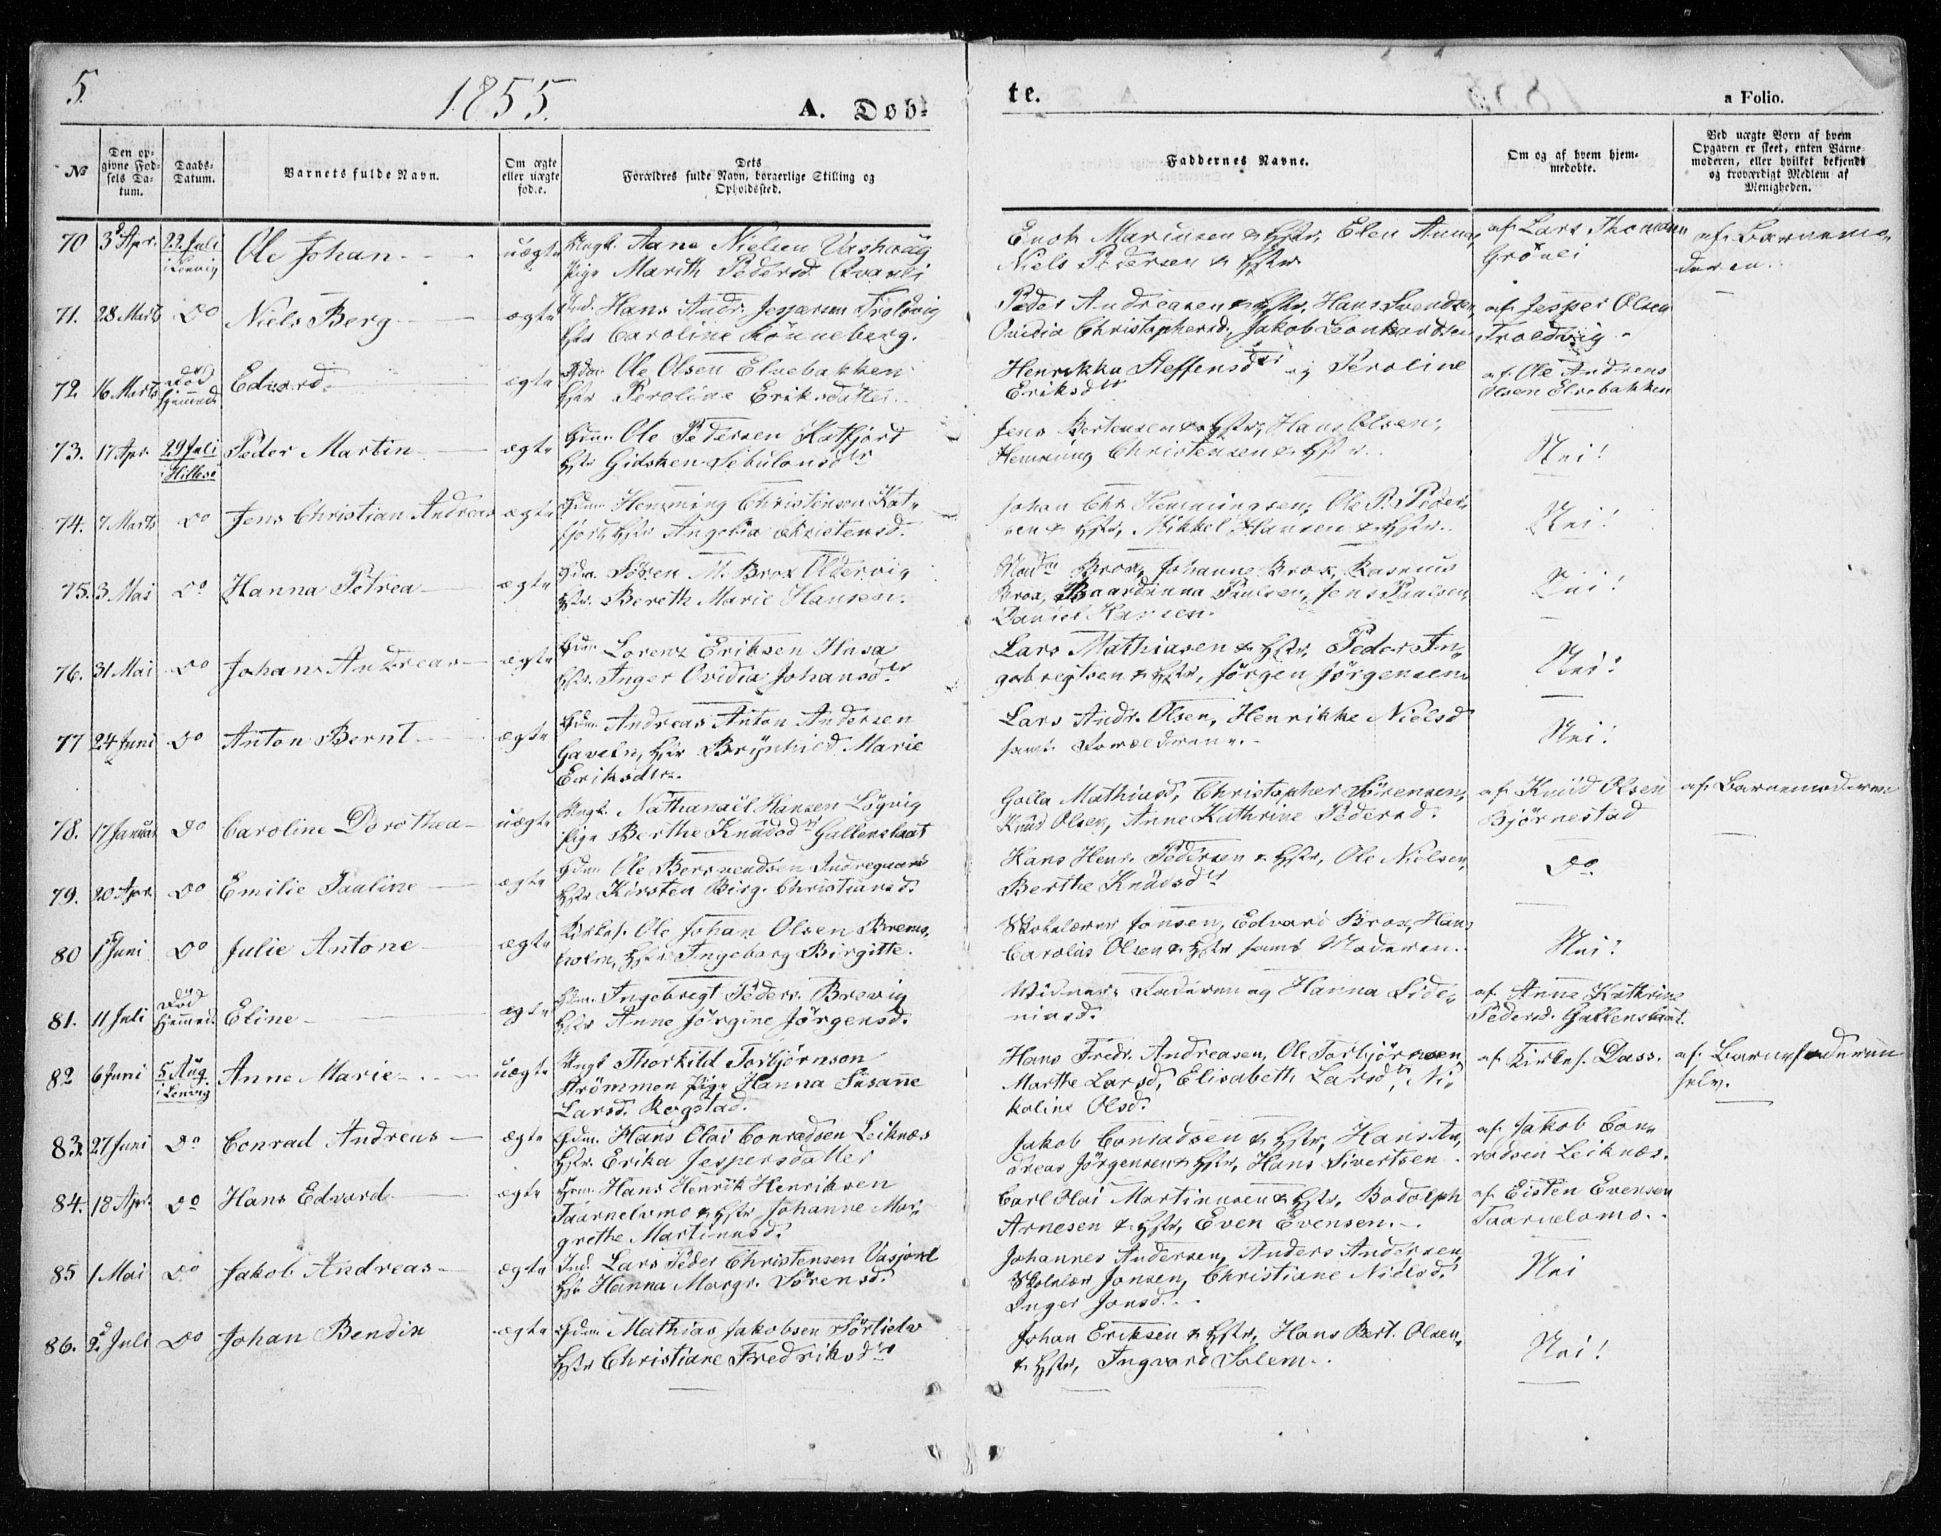 5.
1855.
A. Døb-
te.
a Folio.
№
Den op-
givne Fød-
sels Da-
tum.
Daabs-
Datum.
Barnets fulde Navn.
Om ægte
eller uægte
fød.e.
Dets
Forældres fulde Navn, borgerlige Stilling og
Opholdssted.
Faddernes Navne.
Om og af hvem hjem-
medøbte.
Ved uægte Børn af hvem
Opgaven er skeet, enten Barne-
moderen, eller hvilket bekjendt
og troværdigt Medlem af
Menigheden.
70 3 Apr. 22 Juli i Lenvig Ole Johan uægte
Ungk. Aane Nielsen
Pige Marith Pedersd.
Enok Mariusen & Hstr, Elen Anna,
Niels Pedersen & Hstr
af Lars Thomassen
Grönli
af Barnemo-
deren.
71. 28 Marts Do Niels Berg ægte
Ind. Hans Andr. Jespersen Troldvig
Hstr Caroline Rönneberg.
Peder Andreasen & Hstr, Hans Svendsen,
Ovidia Christophersd. Jakob Leonhardsen
af Jesper Olsen
Troldvig
72 16 Marts Død Hjemmed. Edvard ægte
Gdm. Ole Olsen Elvebakken
Hstr Peroline Eriksdatter
Henrikka Steffensdtr og Peroline
Eriksdtr
af Ole Andreas
Olsen Elvebakken
73. 17 Apr. 29 Juli i Hillesö Peder Martin ægte
Gdm. Ole Pedersen Katfjord
Hstr Gidsken Sebulonsdtr
Jens Bertensen & Hstr, Hans Olsen,
Henning Christensen & Hstr.
Nei!
74. 7 Marts Do Jens Christian Andreas ægte
Gdm. Hemming Christensen Kat-
fjord, Hstr Angelia Christensd.
Johan Chr. Hemmingsen, Ole P. Peder-
sen & Hstr, Mikkel Hansen & Hstr.
Nei!
75. 3 Mai Do Hanna Petrea ægte
Gdm. Sören M. Brox Oldervig
Hstr. Bereth Marie Hansen.
Mad. Brox, Johanne Brox, Rasmus
Brox, Baardinna Paulsen, Jens Paulsen,
Daniel Hansen.
Nei!
76. 31 Mai Do Johan Andreas ægte
Gdm. Lorenz Eriksen Hasa
Hstr. Inger Ovidia Johansdtr
Lars Mathiasen & Hstr, Peder In-
gebregtsen & Hstr, Jörgen Jörgensen
Nei!
77 24 Juni Do Anton Bernt ægte
Gdm. Andreas Anton Andersen
Gaveln, Hstr Brynhild Marie
Eriksdtr.
Lars Andr. Olsen, Henrikke Nielsd
samt Forældrene.
Nei!
78. 17 Januar Do Caroline Dorothea uægte
Ungk. Nathanaël Hansen Lögvig
Pige Berthe Knudsdtr Gallenslaat
Golla Mathiasd, Christopher Sörensen,
Knud Olsen, Anne Kathrine Pedersd.
af Knud Olsen
Bjørnestad
af Barnemoderen
79. 20 Apr. Do Emilie Pauline ægte
Gdm. Ole Bersvendsen Indregaard
Hstr Kirsten Birg. Christiansd.
Hans Henr. Pedersen & Hstr, Ole Nielsen,
Berthe Knudsdtr
Do
80 1 Juni Do Julie Antone ægte
Kirkes. Ole Johan Olsen Brems-
holm, Hstr Ingeborg Birgitte.
Skolelærer Jonsen, Edvard Brox, Hans
Carolus Olsen & Hstr samt Moderen.
Nei!
81. 11 Juli Død Hjemmed. Eline ægte
Gdm. Ingebregt Peders. Brevig
Hstr Anne Jörgine Jörgensd.
Vidner: Faderen og Hanna Side-
niusd.
af Anne Kathrine
Pedersd. Gallenslaat.
82 6 Juni 5 Aug. i Lenvig Anne Marie uægte
Ungk Thorkild Torbjørnson
Strömmen Pige Hanna Susanne
Larsd. Rogstad.
Hans Fredr. Andreasen, Ole Torbjörnsen,
Marthe Larsd, Elisabeth Larsdtr, Ni-
koline Olsd.
af Kirkes. Dass.
af Barnefaderen
selv.
83. 27 Juni Do Conrad Andreas ægte
Gdm. Hans Olai Conradsen Leiknæs
Hstr. Erika Jespersdatter
Jakob Conradsen & Hstr, Hans An-
dreas Jörgensen & Hstr, Hans Sivertsen
af Jakob Con-
radsen Leiknæs.
84. 18 Apr. Do Hans Edvard ægte
Gdm. Hans Henrik Henriksen
Taarnelvmo & Hstr Johanne Mar-
grethe Martinusd.
Carl Olai Martinusen & Hstr, Bodolph
Arnesen & Hstr, Even Evensen.
af Eisten Evensen
Taarnelvmo.
85 1 Mai Do Jakob Andreas ægte
Ind. Lars Peder Christensen Vasjord
Hstr Hanna Margr. Sörensd.
Johannes Andersen, Anders Andersen,
Skolelær Jonsen, Christiane Nielsd.
Inger Jonsd.
Nei
86. 2 Juli Do Johan Bendix ægte
Gdm. Mathias Jakobsen Sörlielv
Hstr Christiane Fredriksdtr
Johan Eriksen & Hstr, Hans Bert. Olsen,
& Hstr, Ingvard Solem.
Nei!